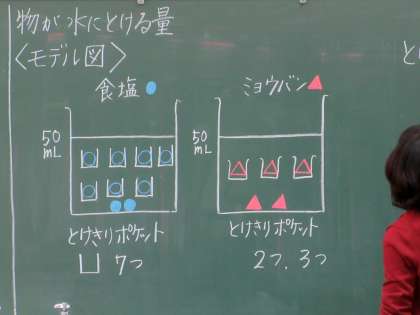 物が水にとける量
〈モデル図〉
食塩
ミョウバン
50
mL
50
mL
とけきりポケット
とけきりポケット
7つ
2つ、3つ
と